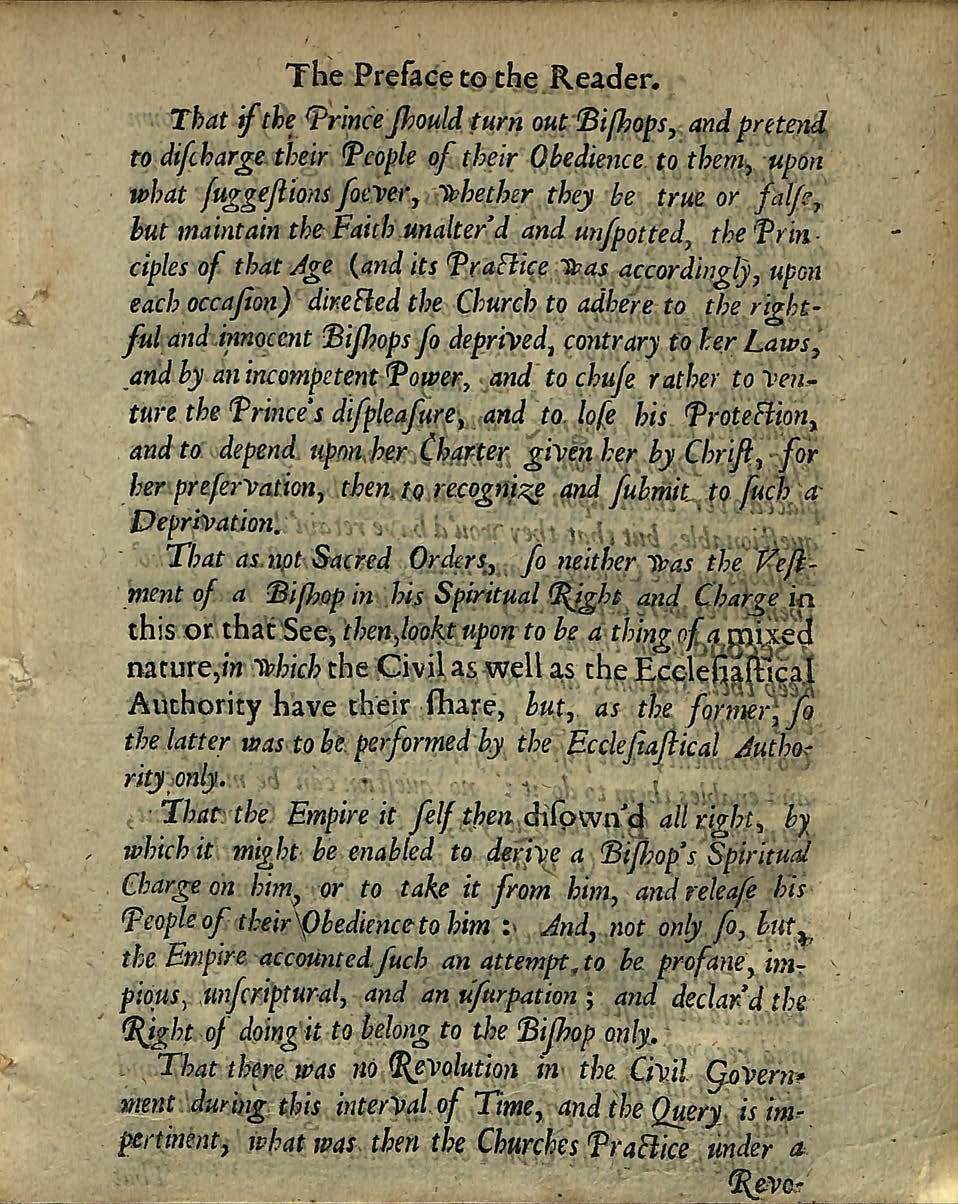 The Preface to the Reader.
That if the Prince ſhould turn out Biſhops, and pretend
to diſcharge their People of their Obedience to them, upon
what ſuggeſtions ſoever, whether they be true or falſe,
but maintain the Faith unalter'd and unſpotted, the Prin-
ciples of that Age (and its Practice was accordingly, upon
each occaſion) directed the Church to adhere to the right-
ful and innocent Biſhops ſo deprived, contrary to her Laws,
and by an incompetent Power, and to chuſe rather to ven-
ture the Prince's diſpleaſure, and to loſe his Protection,
and to depend upon her Charter given her by Chriſt, for
her preſervation, then to recognize and ſubmit to ſuch a
Deprivation.
That as not Sacred Orders, ſo neither was the Veſt-
ment of a Biſhop in his Spiritual Right and Charge in
this or that See, then lookt upon to be a thing of a mixed
nature, in which the Civil as well as the Eccleſiaſtical
Authority have their ſhare, but, as the former, ſo
the latter was to be performed by the Eccleſiaſtical Autho-
rity only.
That the Empire it ſelf then diſown'd all right, by
which it might be enabled to derive a Biſhop's Spiritual
Charge on him, or to take it from him, and releaſe his
People of their Obedience to him: And, not only ſo, but,
the Empire accounted ſuch an attempt to be profane, im-
pious, unſcriptural, and an uſurpation; and declar'd the
Right of doing it to belong to the Biſhop only.
That there was no Revolution in the Civil Govern-
ment during this interval of Time, and the Query is im-
pertinent, what was then the Churches Practice under a
Revo-